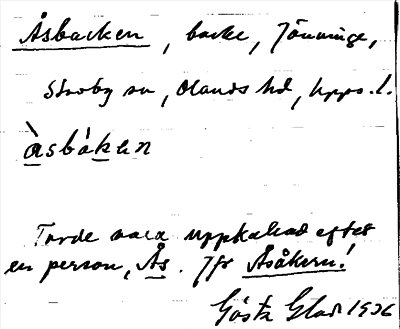 Åsbacken, backe, Jönninge,
Skoby sn, Olands hd, Upps. l.
àsbákɐn
Torde vara uppkallad efter
en person, Ås. Jfr Åsåkern!
Gösta Glad 1926